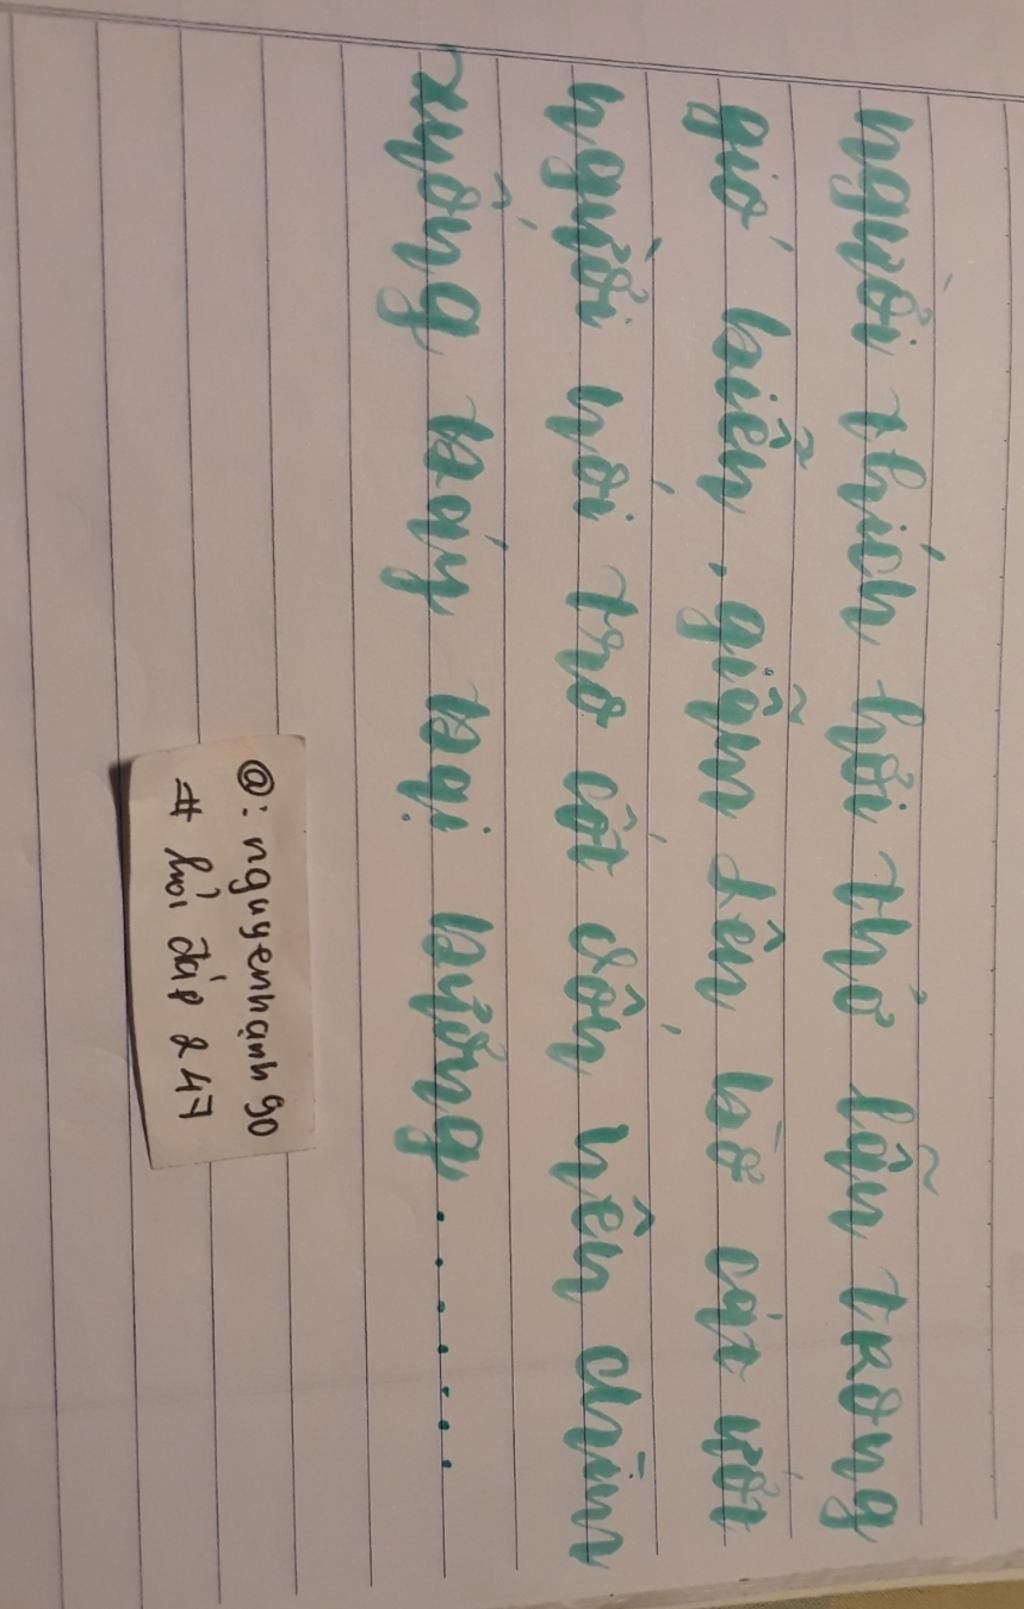 người thích hơi thở lẫn trong
gió biển, giẫm lên bờ cát ướt
người nói tro cốt dồn nên chìm
xuống đáy đại dương.......
@: nguyenhạnh90
# hỏi đáp 247